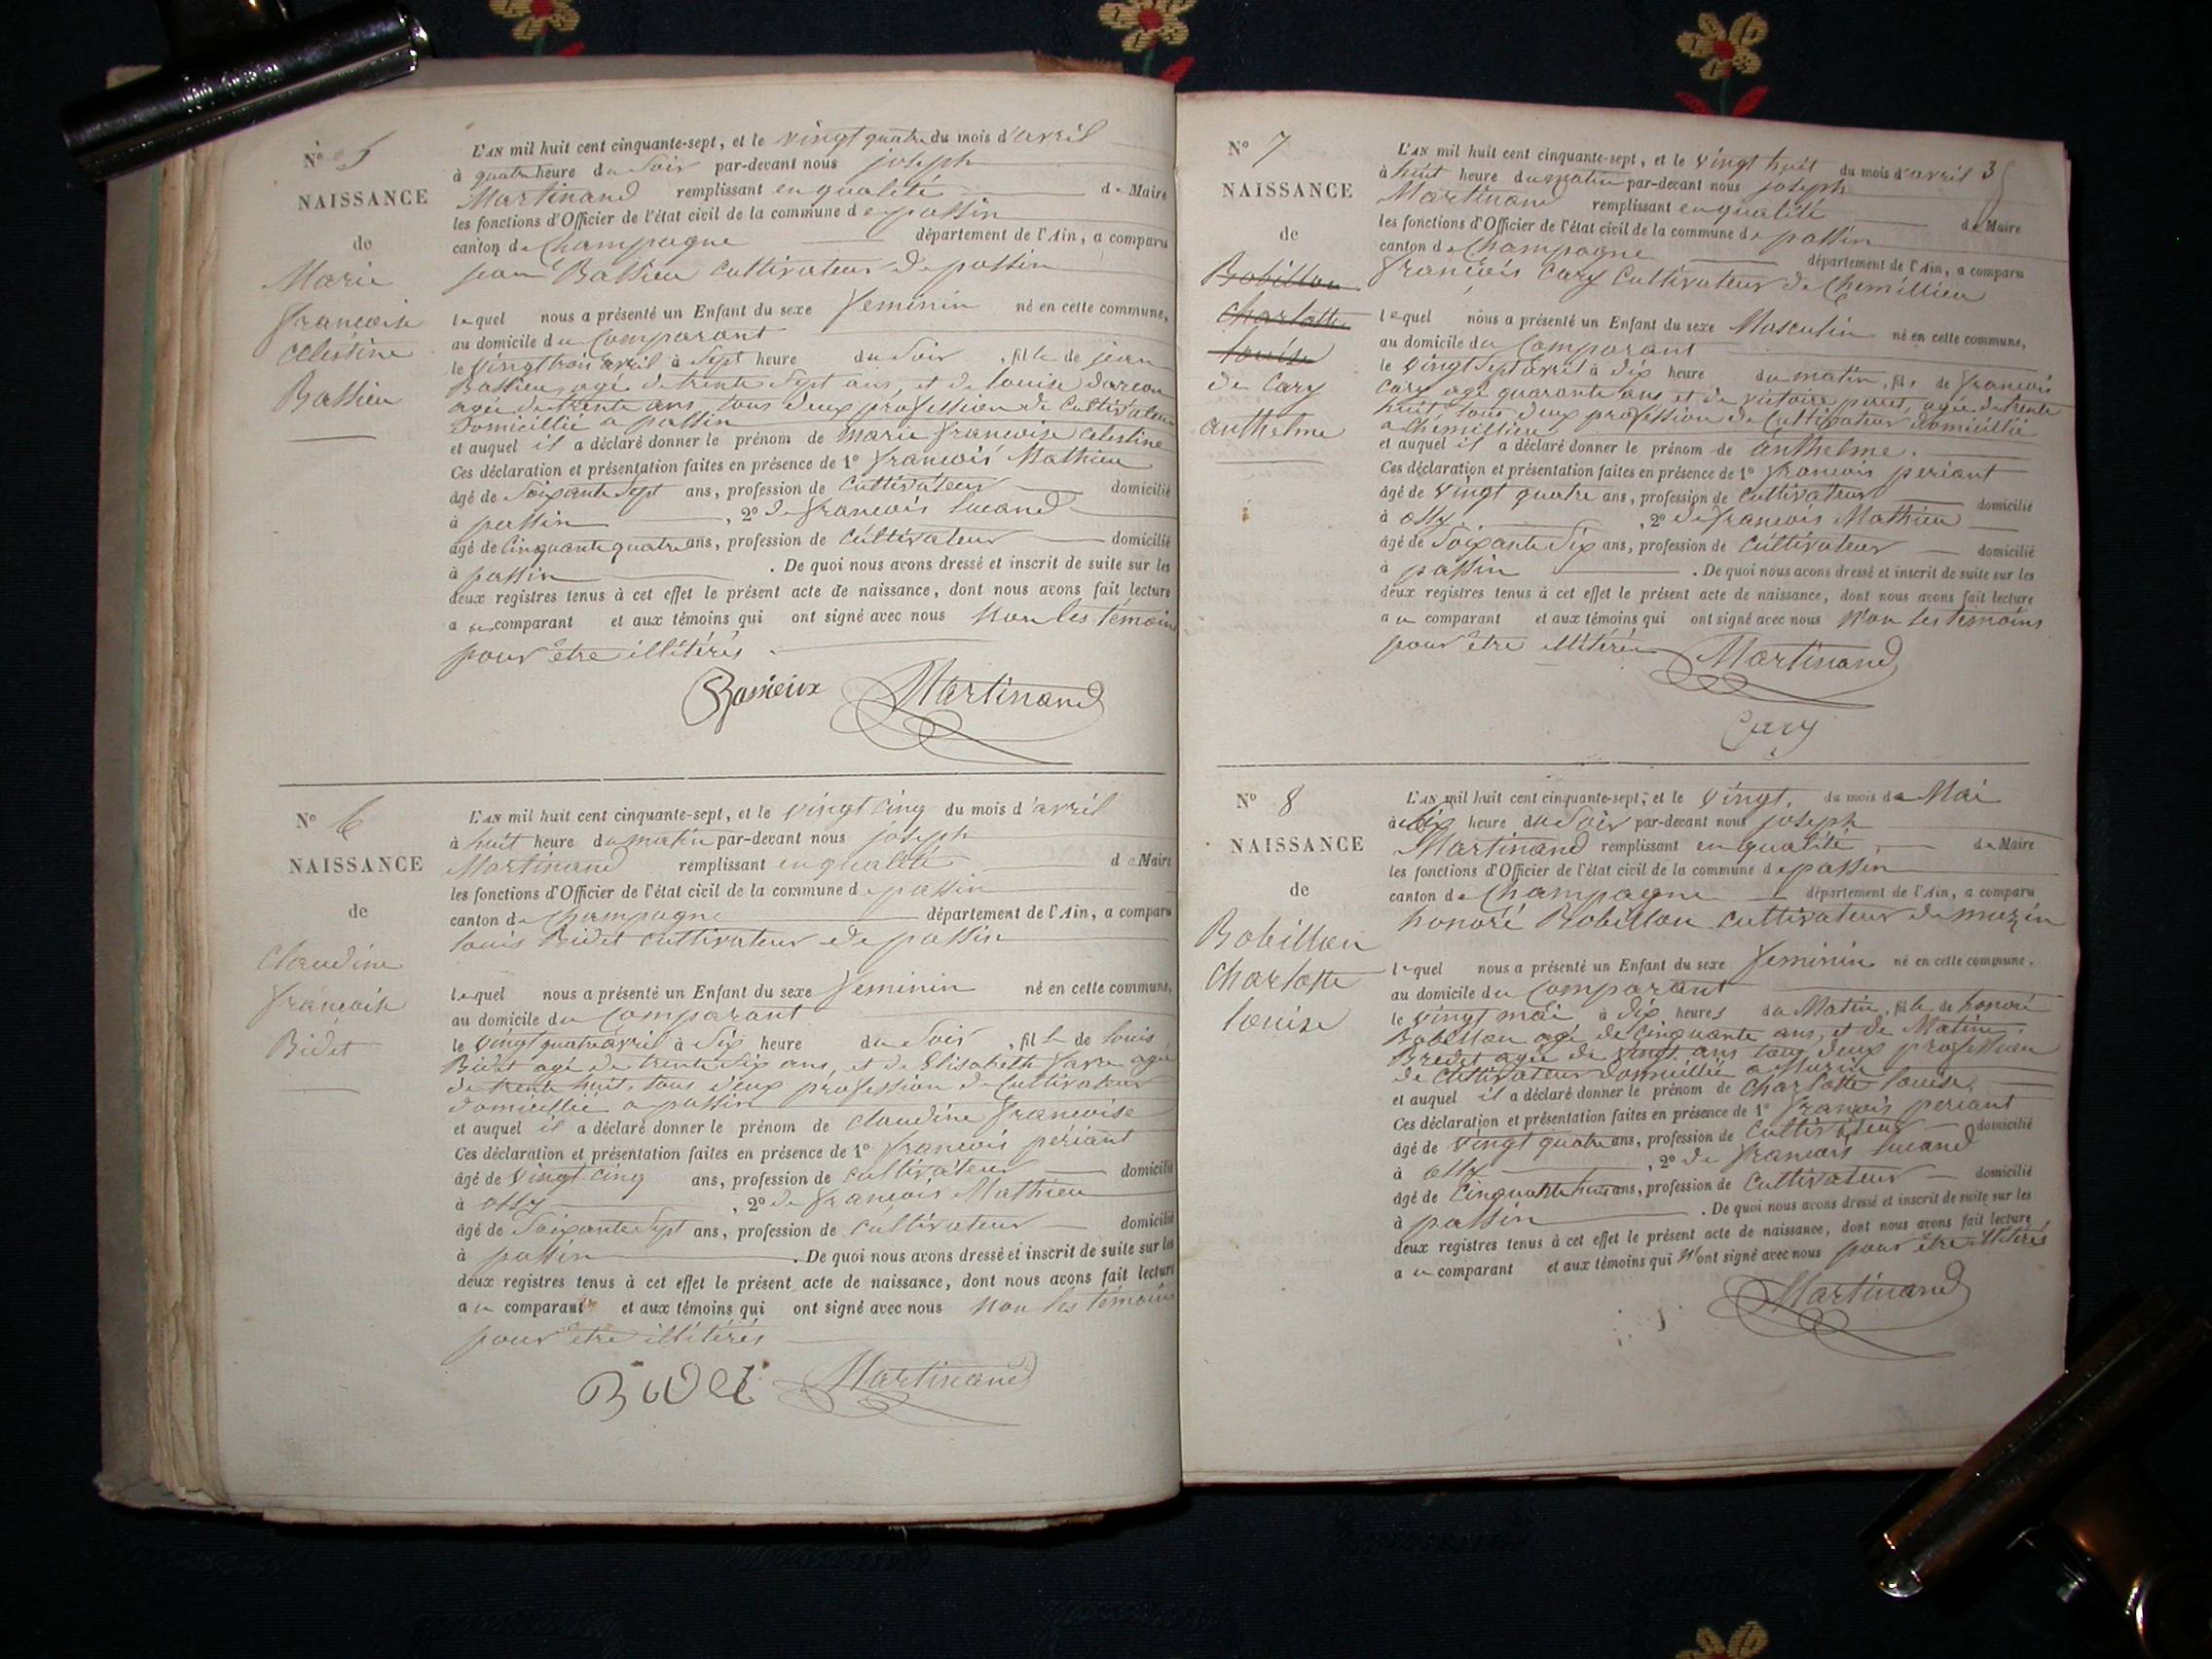 N° 5
NAISSANCE
de
Marie
francoise
celestine
Bassieu
L'AN mil huit cent cinquante-sept, et le vingt quatre du mois d'avril
à quatre heure du soir par-devant nous joseph
Martinand remplissant en qualité de Maire
les fonctions d'Officier de l'état civil de la commune de passin
canton de Champagne département de l'Ain, a comparu
jean Bassieu cultivateur de passin
lequel nous a présenté un Enfant du sexe feminin né en cette commune,
au domicile du Comparant
le vingt trois avril à sept heure du soir, fille de jean
Bassieu agé de trente sept ans, et de louise darcon
agée de trente ans, tous deux profession de cultivateur
domicillié a passin
et auquel il a déclaré donner le prénom de marie francoise celestine
Ces déclaration et présentation faites en présence de 1° francois Mathieu
âgé de soixante sept ans, profession de cultivateur domicilié
à passin, 2° de francois lucand
âgé de Cinquante quatre ans, profession de cultivateur domicilié
à passin. De quoi nous avons dressé et inscrit de suite sur les
deux registres tenus à cet effet le présent acte de naissance, dont nous avons fait lecture
au comparant et aux témoins qui ont signé avec nous Non les témoins
pour être illitérés.
Bassieux Martinand
N° 6
NAISSANCE
de
Claudine
francoise
Bidet
L'AN mil huit cent cinquante-sept, et le vingt cinq du mois d'avril
à huit heure du matin par-devant nous joseph
Martinand remplissant en qualité de Maire
les fonctions d'Officier de l'état civil de la commune de passin
canton de Champagne département de l'Ain, a comparu
louis Bidet cultivateur de passin
lequel nous a présenté un Enfant du sexe feminin né en cette commune,
au domicile du Comparant
le vingt quatre avril à six heure du soir, fille de louis
Bidet agé de trente six ans, et de Elisabeth favre agée
de trente huit, tous deux profession de Cultivateur
domicillié a passin
et auquel il a déclaré donner le prénom de claudine francoise
Ces déclaration et présentation faites en présence de 1° francois périant
âgé de vingt cinq ans, profession de cultivateur domicilié
à ossy, 2° de francois Mathieu
âgé de soixante sept ans, profession de cultivateur domicilié
à passin. De quoi nous avons dressé et inscrit de suite sur les
deux registres tenus à cet effet le présent acte de naissance, dont nous avons fait lecture
au comparant et aux témoins qui ont signé avec nous Non les témoins
pour être illitérés
Bidet Martinand
3
N° 7
NAISSANCE
de
Bobillon
charlotte
louise
de Cary
anthelme
L'AN mil huit cent cinquante-sept, et le vingt huit du mois d'avril
à huit heure du matin par-devant nous joseph
Martinand remplissant en qualité de Maire
les fonctions d'Officier de l'état civil de la commune de passin
canton de Champagne département de l'Ain, a comparu
francois Cary Cultivateur de Chemillieu
lequel nous a présenté un Enfant du sexe Masculin né en cette commune,
au domicile du Comparant
le vingt sept avril à dix heure du matin, fils de francois
Cary agé quarante ans et de victoire perret, agée de trente
huit, tous deux profession de Cultivateur domicillié
a chemillieu
et auquel il a déclaré donner le prénom de anthelme.
Ces déclaration et présentation faites en présence de 1° francois periant
âgé de vingt quatre ans, profession de cultivateur domicilié
à ossy, 2° de francois Mathieu
âgé de soixante six ans, profession de cultivateur domicilié
à passin. De quoi nous avons dressé et inscrit de suite sur les
deux registres tenus à cet effet le présent acte de naissance, dont nous avons fait lecture
au comparant et aux témoins qui ont signé avec nous Non les témoins
pour être illitérés Martinand
Cary
N° 8
NAISSANCE
de
Bobillon
Charlotte
louise
L'AN mil huit cent cinquante-sept, et le vingt, du mois de Mai
à six heure du soir par-devant nous joseph
Martinand remplissant en qualité de Maire
les fonctions d'Officier de l'état civil de la commune de passin
canton de Champagne département de l'Ain, a comparu
honoré Bobillon cultivateur de muzin
lequel nous a présenté un Enfant du sexe feminin né en cette commune.
au domicile du Comparant
le vingt mai à dix heures du Matin, fille de honoré
Bobillon agé de cinquante ans, et de
Bredet agée de vingt ans tous deux profession
de cultivateur domicillié a Muzin
et auquel il a déclaré donner le prénom de charlotte louise.
Ces déclaration et présentation faites en présence de 1° francois periant
âgé de vingt quatre ans, profession de cultivateur domicilié
à ossy, 2° de francois lucand
âgé de Cinquante ans, profession de cultivateur domicilié
à passin. De quoi nous avons dressé et inscrit de suite sur les
deux registres tenus à cet effet le présent acte de naissance, dont nous avons fait lecture
au comparant et aux témoins qui N'ont signé avec nous pour être illitérés
Martinand